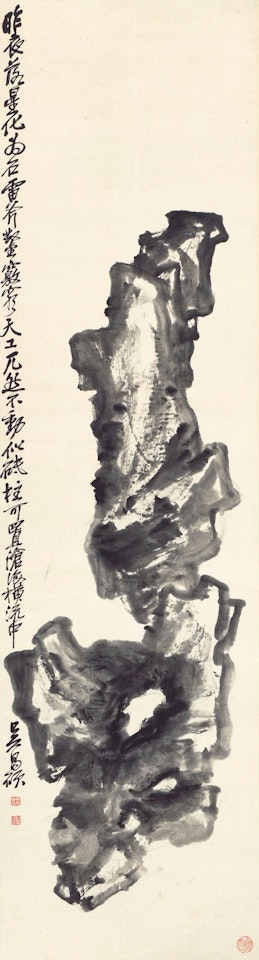 昨夜落星化为石雷斧鑿竅窮天工兀然不動似砥柱可置滄海橫流中
吴昌碩